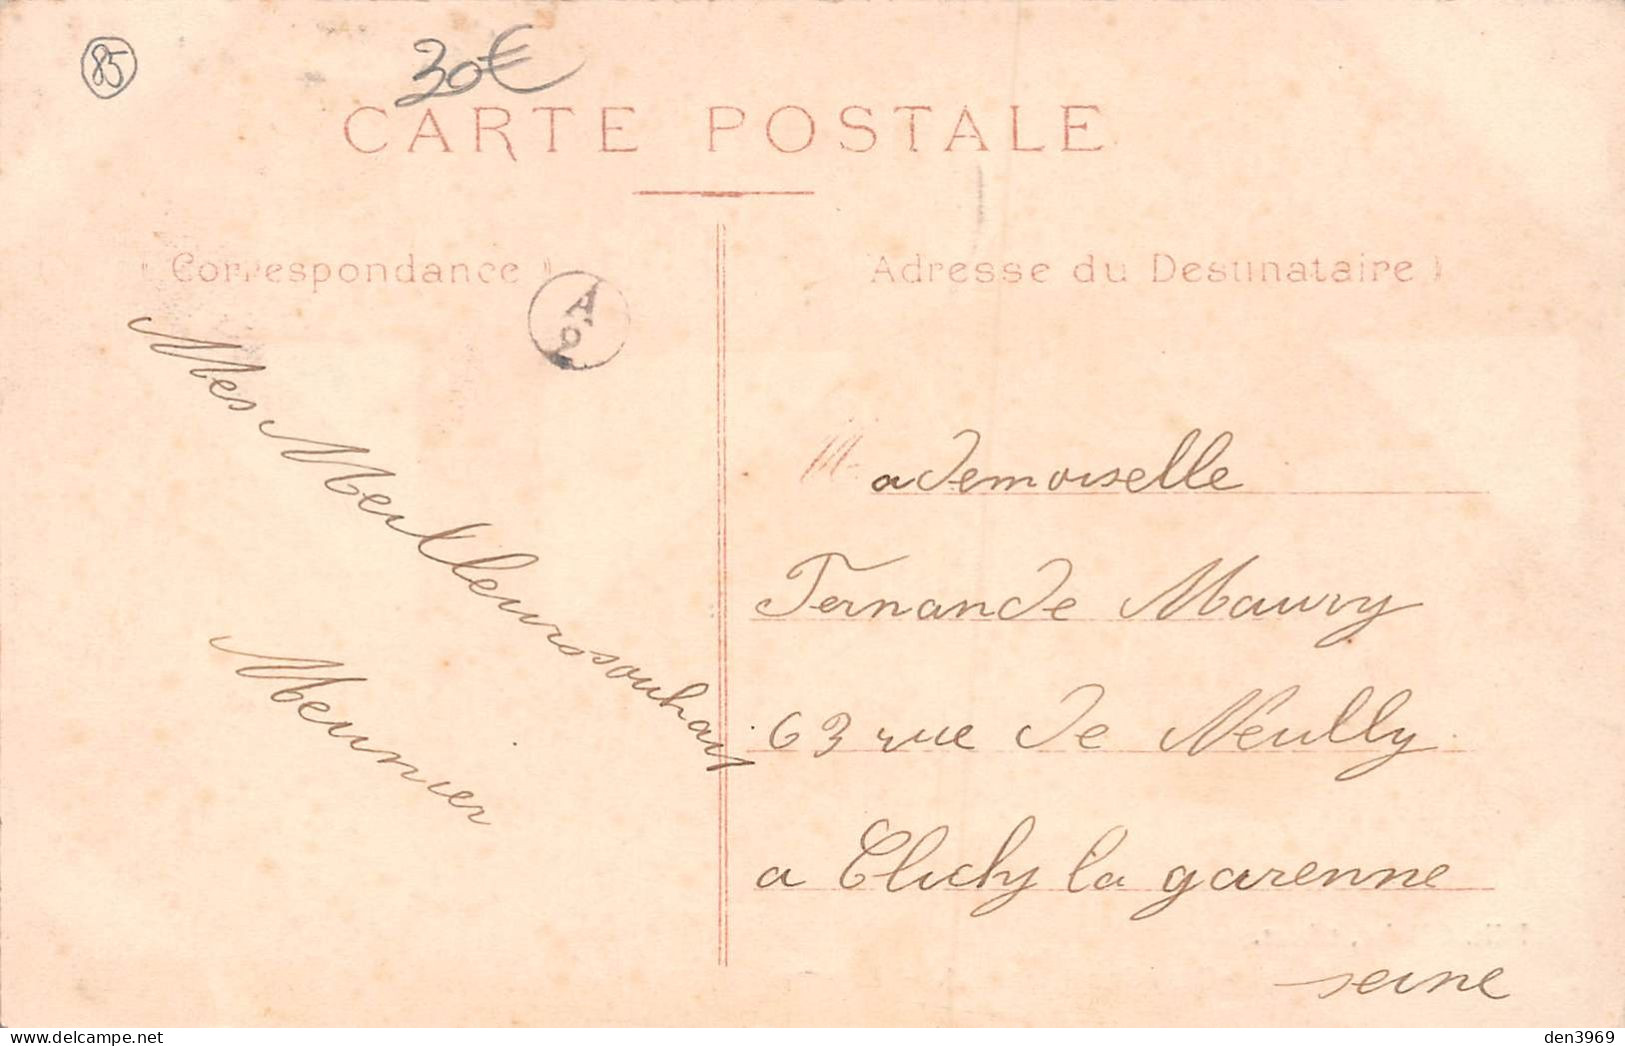 85
30€
CARTE POSTALE
Correspondance
Adresse du Destinataire
A
2
Mes Meilleurs souhait
Meunier
Mademoiselle
Fernande Maury
63 rue de Neuilly
a Clichy la garenne
seine
www.delcampe.net
den3969